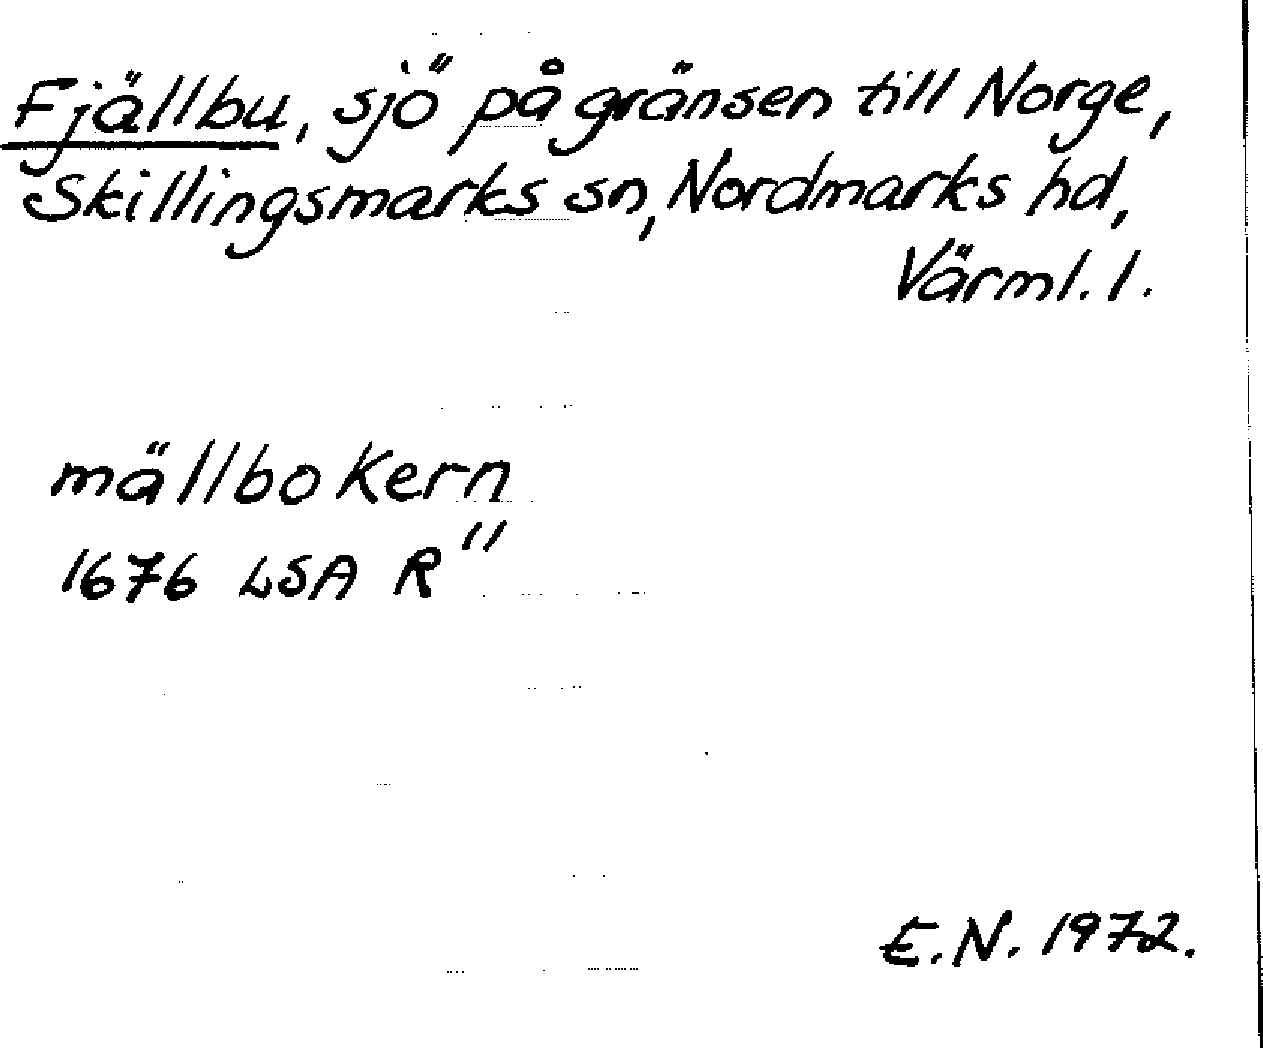 Fjällbu, sjö på gränsen till Norge,
Skillingsmarks sn, Nordmarks hd,
Värml. l.
mällbo Kern
1676 LSA R"
E.N. 1972.